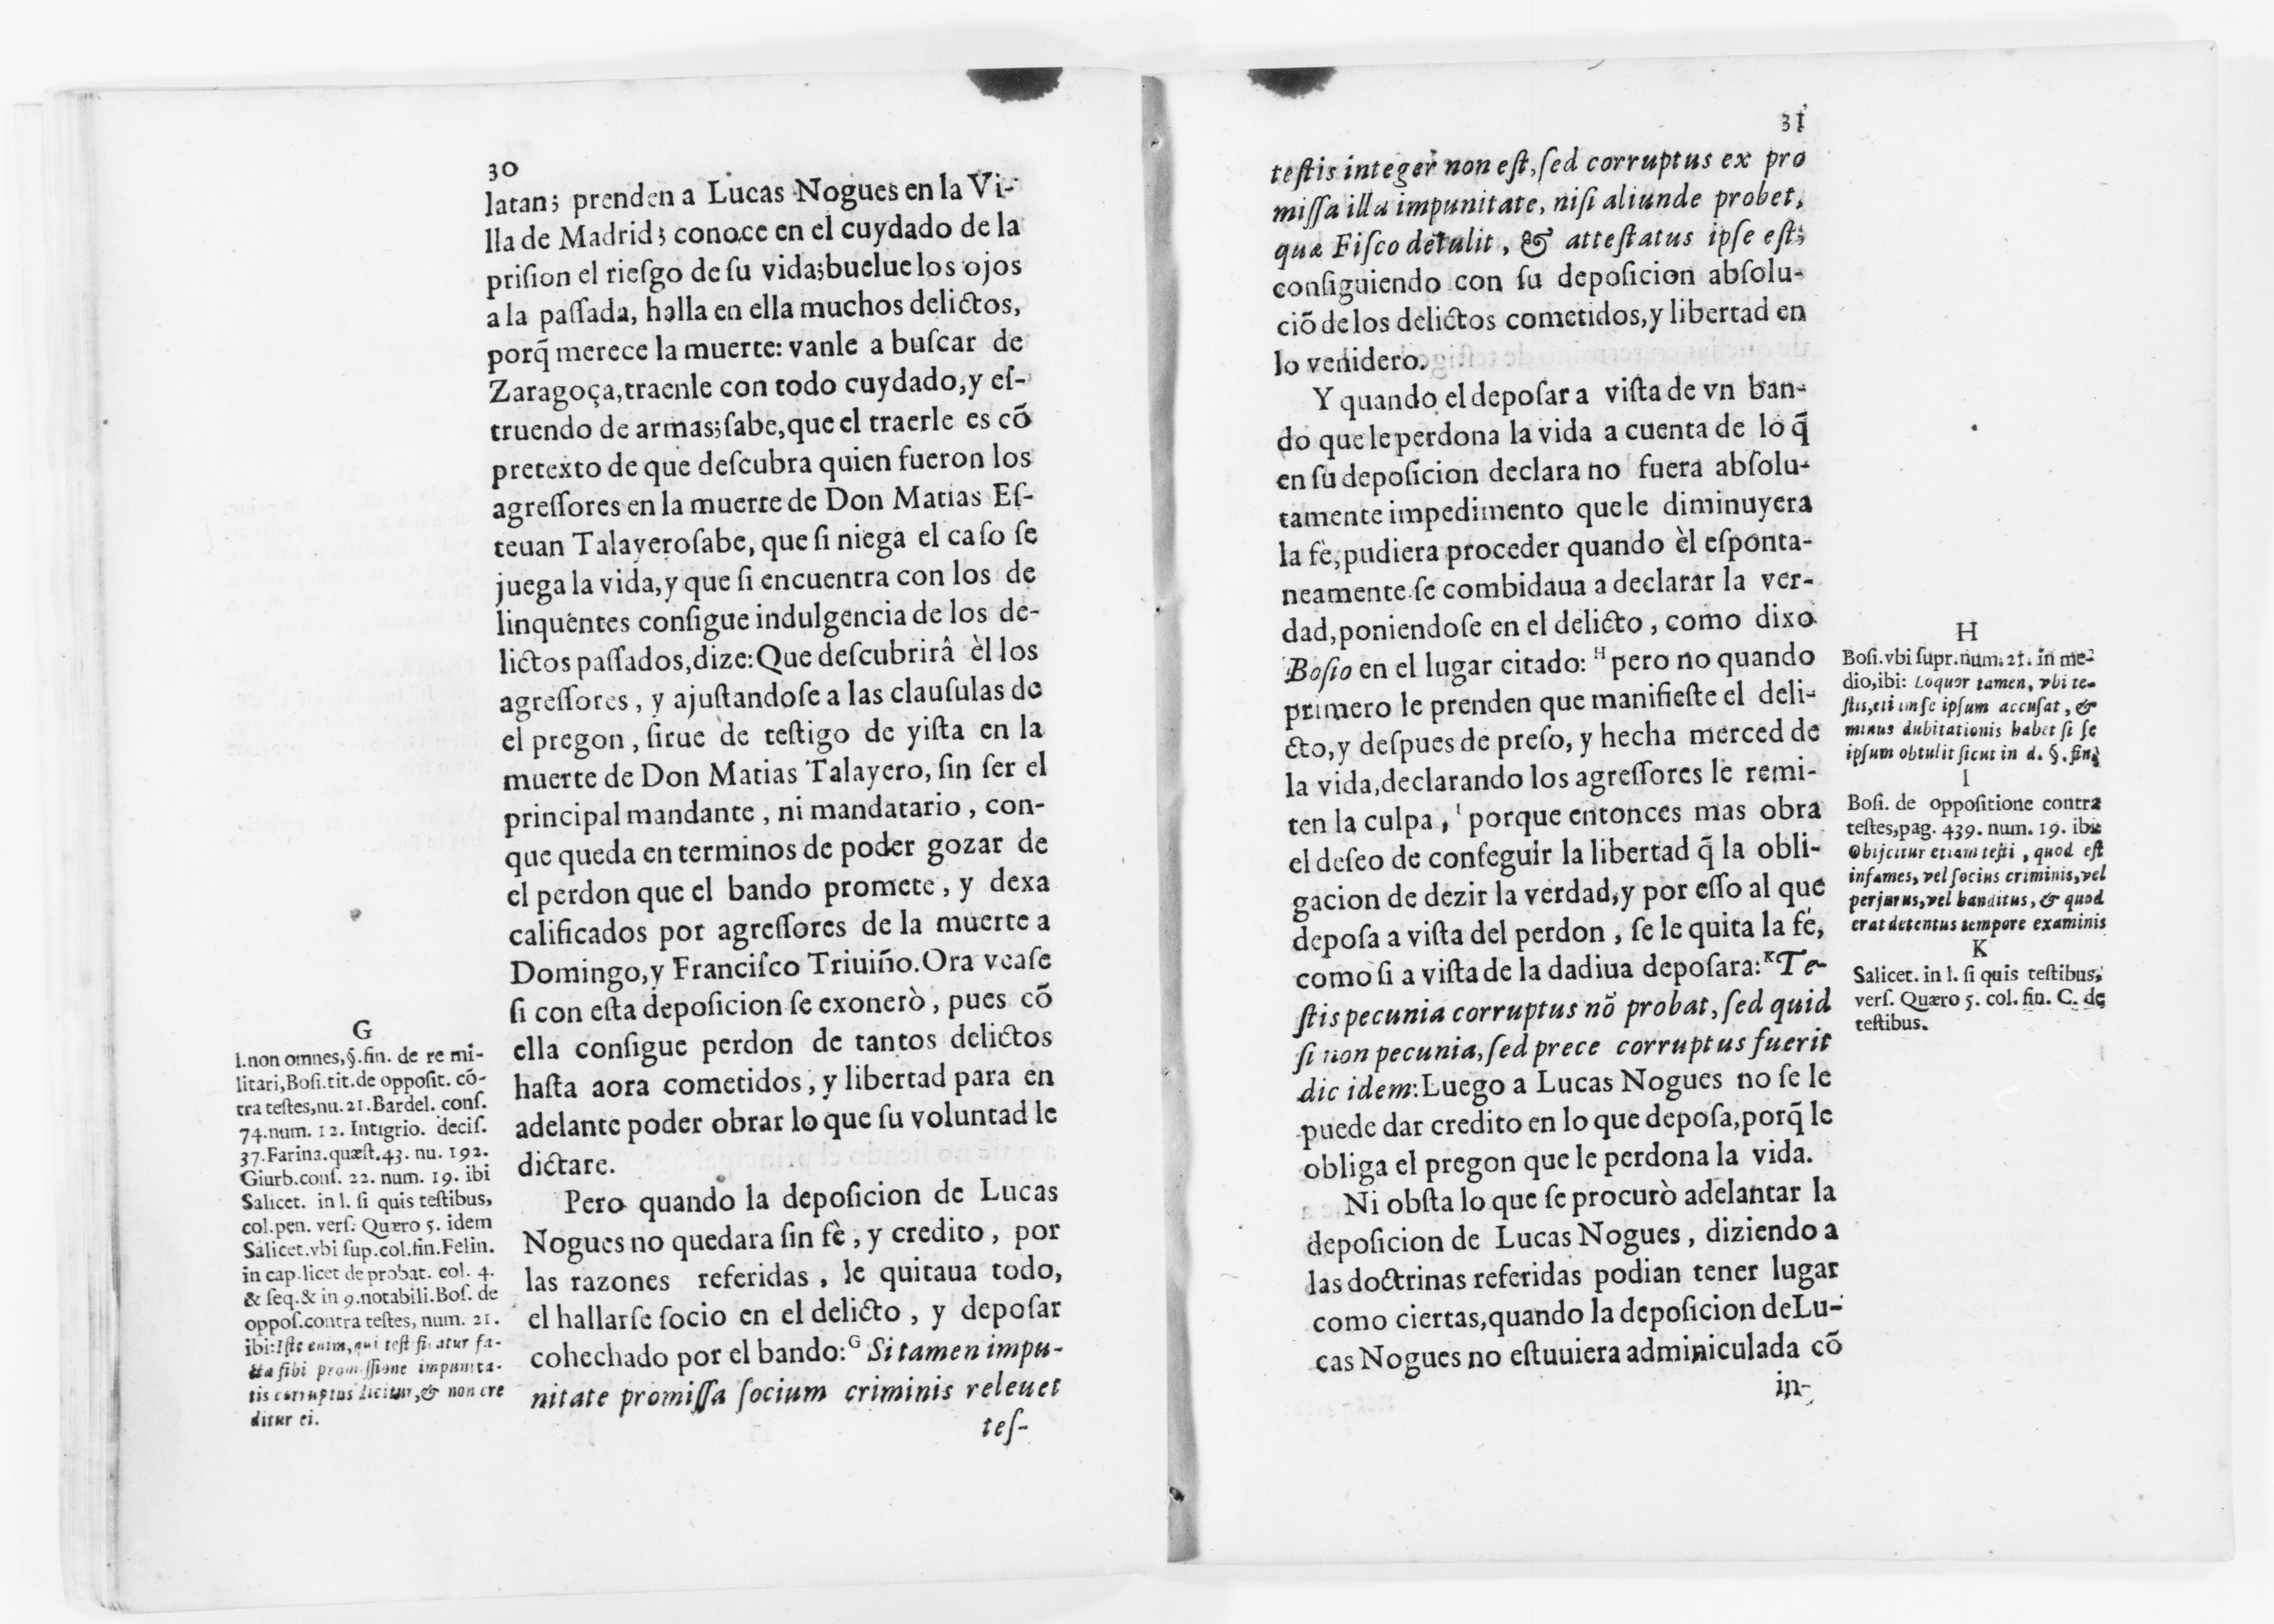 30
latan; prenden a Lucas Nogues en la Vi-
lla de Madrid; conoce en el cuydado de la
priſion el rieſgo de ſu vida; buelue los ojos
a la paſſada, halla en ella muchos delictos,
porq̃ merece la muerte: vanle a buſcar de
Zaragoça, traenle con todo cuydado, y eſ-
truendo de armas; ſabe, que el traerle es cõ
pretexto de que deſcubra quien fueron los
agreſſores en la muerte de Don Matias Eſ-
teuan Talayero ſabe, que ſi niega el caſo ſe
juega la vida, y que ſi encuentra con los de
linquentes conſigue indulgencia de los de-
lictos paſſados, dize: Que deſcubrirâ èl los
agreſſores, y ajuſtandoſe a las clauſulas de
el pregon, ſirue de teſtigo de viſta en la
muerte de Don Matias Talayero, ſin ſer el
principal mandante, ni mandatario, con-
que queda en terminos de poder gozar de
el perdon que el bando promete, y dexa
calificados por agreſſores de la muerte a
Domingo, y Franciſco Triuiño. Ora veaſe
ſi con eſta depoſicion ſe exonerò, pues cõ
ella conſigue perdon de tantos delictos
haſta aora cometidos, y libertad para en
adelante poder obrar lo que ſu voluntad le
dictare.
Pero quando la depoſicion de Lucas
Nogues no quedara ſin fè, y credito, por
las razones referidas, le quitaua todo,
el hallarſe ſocio en el delicto, y depoſar
cohechado por el bando: G Si tamen impu-
nitate promiſſa ſocium criminis releuet
teſ-
G
l. non omnes, §. fin. de re mi-
litari, Boſi. tit. de oppoſit. cõ-
tra teſtes, nu. 21. Bardel. conſ.
74. num. 12. Intigrio. deciſ.
37. Farina. quæſt. 43. nu. 192.
Giurb. conſ. 22. num. 19. ibi
Salicet. in l. ſi quis teſtibus,
col. pen. verſ. Quæro 5. idem
Salicet. vbi ſup. col. fin. Felin.
in cap. licet de probat. col. 4.
& ſeq. & in 9. notabili. Boſ. de
oppoſ. contra teſtes, num. 21.
ibi: Iſte enim, qui teſtificatur fa-
cta ſibi promiſſione impunita-
tis corruptus dicitur, & non cre
ditur ei.
31
teſtis integer non eſt, ſed corruptus ex pro
miſſa illa impunitate, niſi aliunde probet,
quæ Fiſco detulit, & atteſtatus ipſe eſt;
conſiguiendo con ſu depoſicion abſolu-
ciõ de los delictos cometidos, y libertad en
lo venidero.
Y quando el depoſar a viſta de vn ban-
do que le perdona la vida a cuenta de lo q̃
en ſu depoſicion declara no fuera abſolu-
tamente impedimento que le diminuyera
la fè, pudiera proceder quando èl eſponta-
neamente ſe combidaua a declarar la ver-
dad, poniendoſe en el delicto, como dixo
Boſio en el lugar citado: H pero no quando
primero le prenden que manifieſte el deli-
cto, y deſpues de preſo, y hecha merced de
la vida, declarando los agreſſores le remi-
ten la culpa, I porque entonces mas obra
el deſeo de conſeguir la libertad q̃ la obli-
gacion de dezir la verdad, y por eſſo al que
depoſa a viſta del perdon, ſe le quita la fé,
como ſi a viſta de la dadiua depoſara: K Te-
ſtis pecunia corruptus nõ probat, ſed quid
ſi non pecunia, ſed prece corruptus fuerit
dic idem: Luego a Lucas Nogues no ſe le
puede dar credito en lo que depoſa, porq̃ le
obliga el pregon que le perdona la vida.
Ni obſta lo que ſe procurò adelantar la
depoſicion de Lucas Nogues, diziendo a
las doctrinas referidas podian tener lugar
como ciertas, quando la depoſicion de Lu-
cas Nogues no eſtuuiera adminiculada cõ
in-
H
Boſi. vbi ſupr. num. 21. in me-
dio, ibi: Loquor tamen, vbi te-
ſtis, etiam ſe ipſum accuſat, &
minus dubitationis habet ſi ſe
ipſum obtulit ſicut in d. §. fin.
I
Boſi. de oppoſitione contra
teſtes, pag. 439. num. 19. ibi:
Obijcitur etiam teſti, quod eſt
infames, vel ſocius criminis, vel
perjurus, vel banditus, & quod
erat detentus tempore examinis
K
Salicet. in l. ſi quis teſtibus,
verſ. Quæro 5. col. fin. C. de
teſtibus.